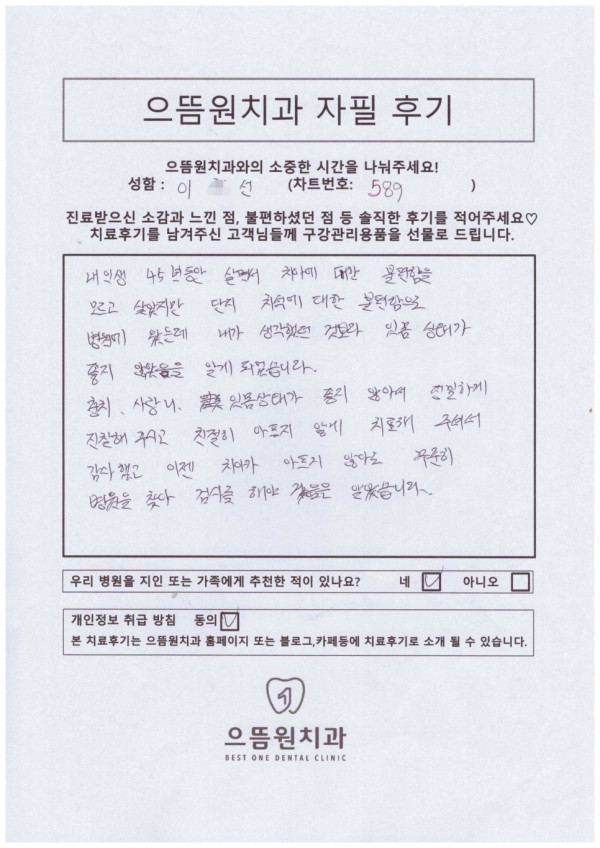 으뜸원치과 자필 후기
으뜸원치과와의 소중한 시간을 나눠주세요!
성함 : 이 선 (차트번호: 589 )
진료받으신 소감과 느낀 점, 불편하셨던 점 등 솔직한 후기를 적어주세요♡
치료후기를 남겨주신 고객님들께 구강관리용품을 선물로 드립니다.
내 인생 45년동안 살면서 치아에 대한 불편함을
모르고 살았지만 단지 치석에 대한 불편함으로
병원에 왔는데 내가 생각했던 것보다 잇몸 상태가
좋지 않았음을 알게 되었습니다.
충치, 사랑니, 잇몸상태가 좋지 않아서 친절하게
진찰해 주시고 친절히 아프지 않게 치료해 주셔서
감사했고 이젠 치아가 아프지 않아도 꾸준히
병원을 찾아 검사를 해야 알았습니다.
우리 병원을 지인 또는 가족에게 추천한 적이 있나요? 네 아니오
개인정보 취급 방침 동의
본 치료후기는 으뜸원치과 홈페이지 또는 블로그,카페등에 치료후기로 소개 될 수 있습니다.
으뜸원치과
BEST ONE DENTAL CLINIC